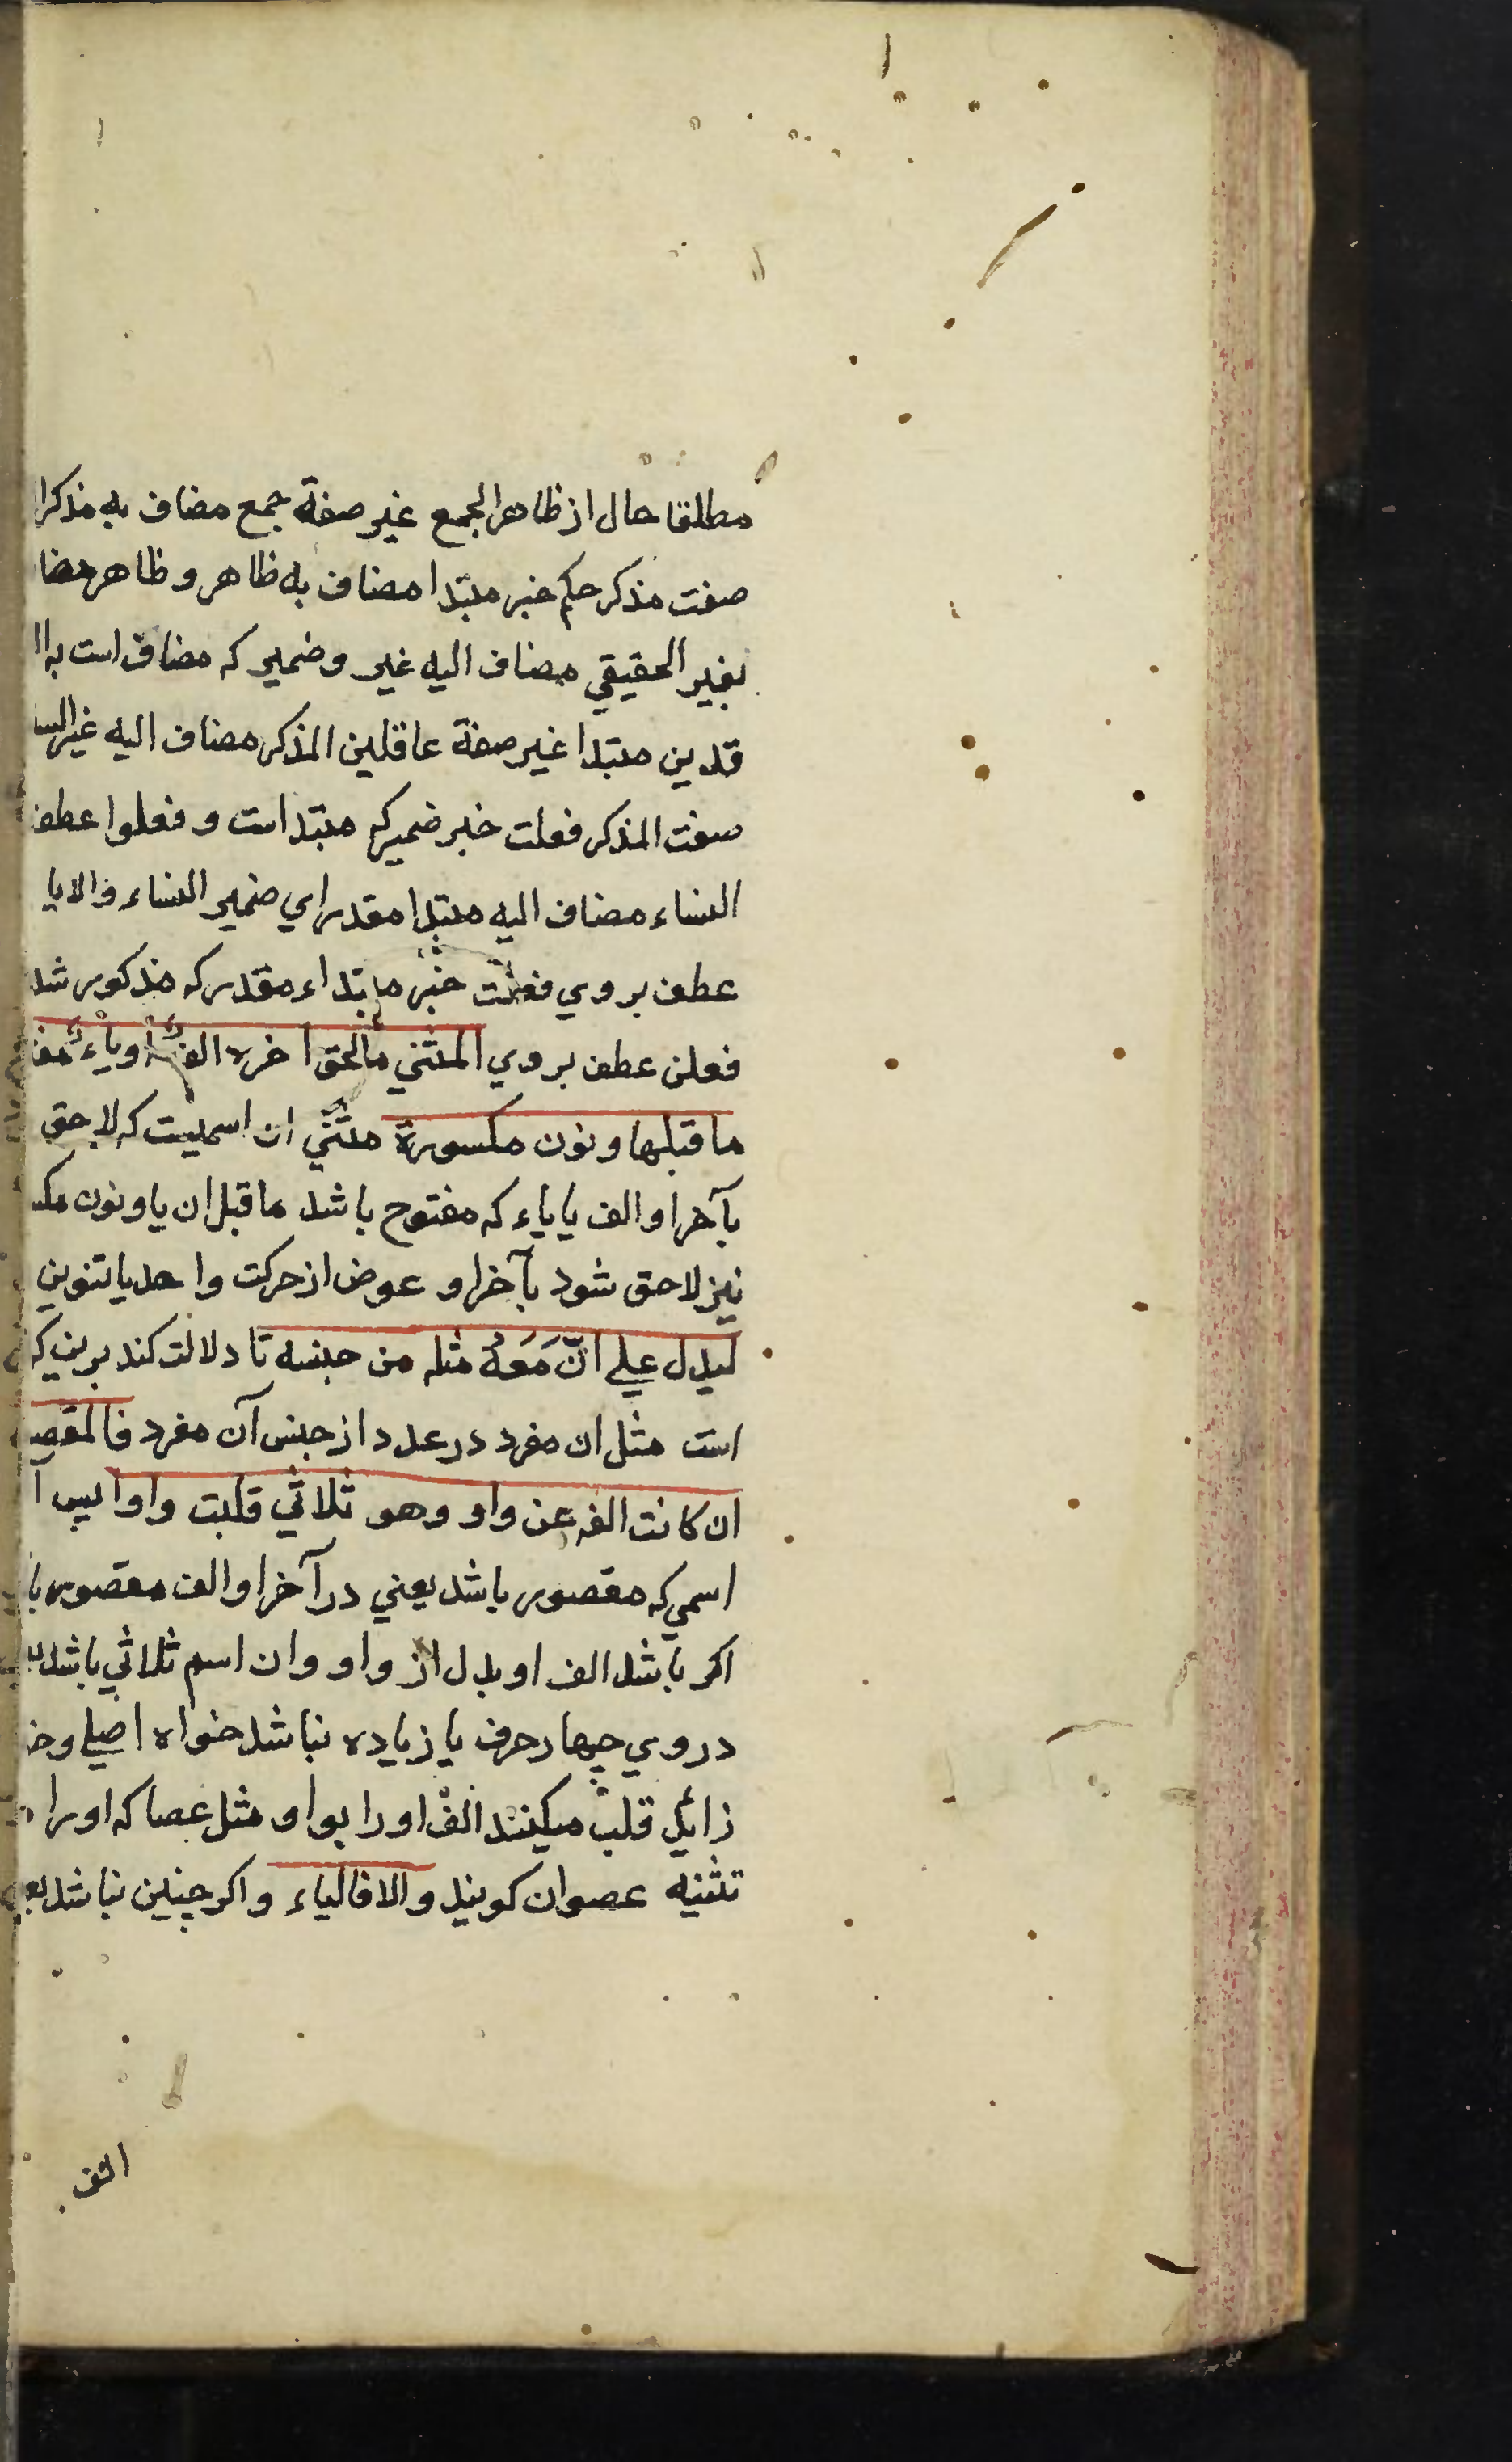 مطلقا حال از ظاهر الجمع غير صفة جمع مضاف به مذكر
صفت مذكر حكم خبر مبتدا مضاف به ظاهر و ظاهر مضا
بغير الحقيقي مضاف اليه غير و ضمير كه مضاف است به
قدين مبتدا غير صفة عاقلين المذكر مضاف اليه غير
صفت المذكر فعلت خبر ضمير كه مبتدا است و فعلوا عطف
النساء مضاف اليه مبتدا مقدر اي ضمير النساء و الايا
عطف بروي فعلت خبر مبتداء مقدر كه مذكور شد
فعلن عطف بروي المثني ما لحق اخره الف او ياء مف
ما قبلها و نون مكسورة مثنّي ان اسميست كه لاحق
بآخر او الف يا ياء كه مفتوح باشد ما قبل ان يا و نون مكس
نيز لاحق شود بآخر او عوض از حركت واحد يا تنوين
ليدل علي انّ مَعَهُ مثله من جنسه تا دلالت كند برين كه
است مثل ان مفرد در عدد از جنس آن مفرد فالمقصو
ان كانت الفه عن واو وهو ثلاثي قلبت واوا پس ا
اسمي كه مقصور باشد يعني در آخر او الف مقصور با
اكر باشد الف او بدل از واو و ان اسم ثلاثي باشد
در وي چهار حرف يا زياده نباشد خواه اصلي و خو
زائد قلب ميكنند الف او را بواو مثل عصا كه او را
تثنيه عصوان كويند و الا فالياء و اكر چنين نباشد يع
الف